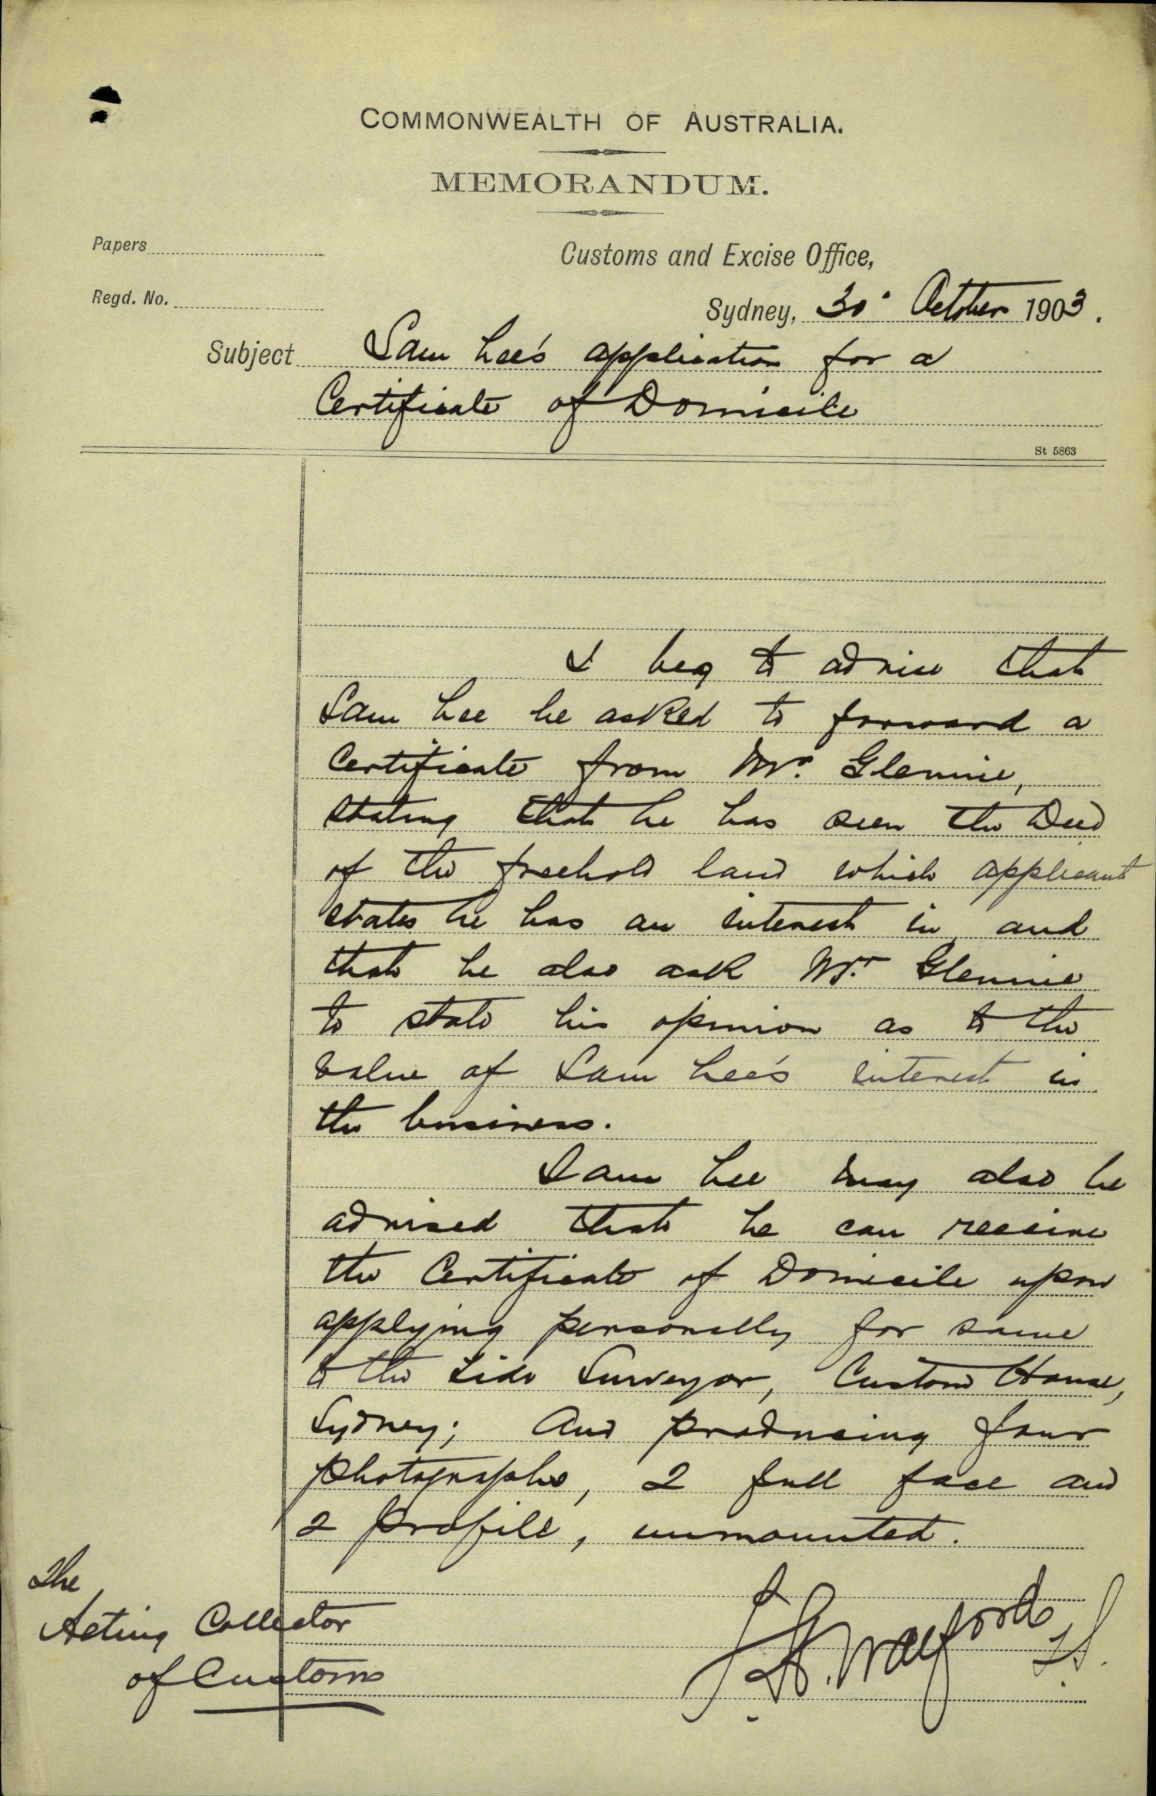 COMMONWEALTH OF AUSTRALIA.
MEMORANDUM.
Papers
Customs and Excise Office,
Regd. No.
Sydney, 30 October 1903.
Subject Sam Lee's application for a
Certificate of Domicile
St 5863
I beg to advise that
Sam Lee be asked to forward a
Certificate from Mr. Glennie,
stating that he has seen the Deed
of the freehold land which applicant
states he has an interest in and
that he also ask Mr. Glennie
to state his opinion as to the
value of Sam Lee's interest in
the business.
Sam Lee may also be
advised that he can receive
the Certificate of Domicile upon
applying personally for same
to the Tide Surveyor, Customs House,
Sydney; and producing four
photographs, 2 full face and
2 profile, unmounted.
The
Acting Collector
of Customs
T.S.